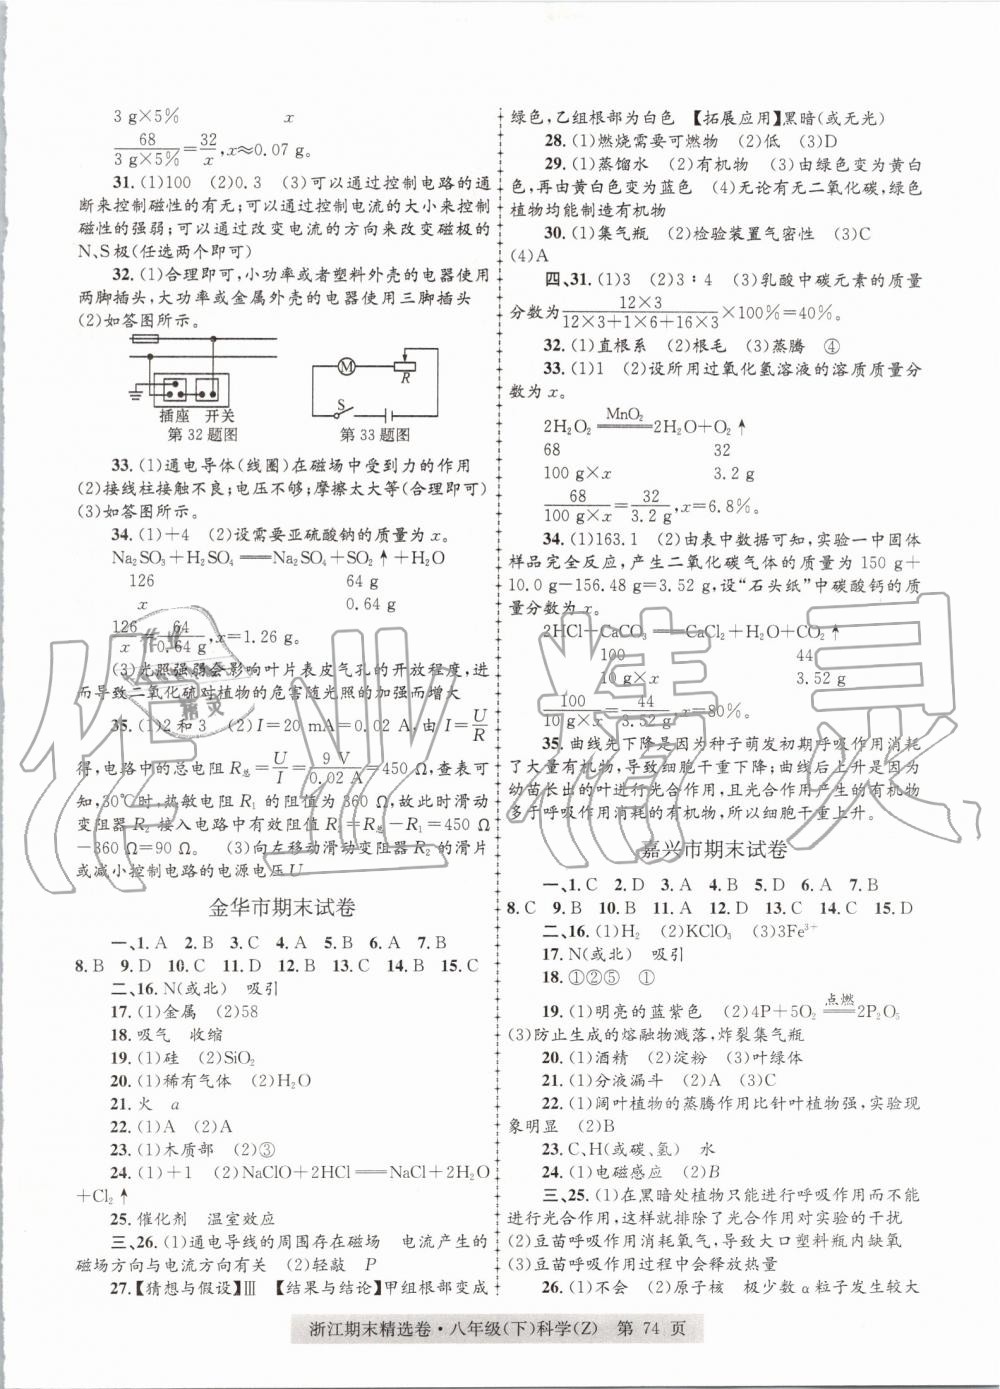 3 g×5%　　　x
68/(3 g×5%)=32/x,x≈0.07 g。
31.(1)100　(2)0.3　(3)可以通过控制电路的通
断来控制磁性的有无;可以通过控制电流的大小来控制
磁性的强弱;可以通过改变电流的方向来改变磁极的
N、S极(任选两个即可)
32.(1)合理即可,小功率或者塑料外壳的电器使用
两脚插头,大功率或金属外壳的电器使用三脚插头
(2)如答图所示。
插座　开关
第32题图
M
R
S
第33题图
33.(1)通电导体(线圈)在磁场中受到力的作用
(2)接线柱接触不良;电压不够;摩擦太大等(合理即可)
(3)如答图所示。
34.(1)+4　(2)设需要亚硫酸钠的质量为x。
Na₂SO₃+H₂SO₄══Na₂SO₄+SO₂↑+H₂O
126　　　64 g
x　　　0.64 g
126/x=64/0.64 g,x=1.26 g。
(3)光照强弱会影响叶片表皮气孔的开放程度,进
而导致二氧化硫对植物的危害随光照的加强而增大
35.(1)2和3　(2)I=20 mA=0.02 A,由I=U/R
得,电路中的总电阻R总=U/I=9 V/0.02 A=450 Ω,查表可
知,30℃时,热敏电阻R₁的阻值为360 Ω,故此时滑动
变阻器R₂接入电路中有效阻值R₂=R总-R₁=450 Ω
-360 Ω=90 Ω。　(3)向左移动滑动变阻器R₂的滑片
或减小控制电路的电源电压U
金华市期末试卷
一、1. A　2. B　3. C　4. A　5. B　6. A　7. B
8. B　9. D　10. C　11. D　12. B　13. B　14. B　15. C
二、16. N(或北)　吸引
17.(1)金属　(2)58
18. 吸气　收缩
19.(1)硅　(2)SiO₂
20.(1)稀有气体　(2)H₂O
21. 火　a
22.(1)A　(2)A
23.(1)木质部　(2)③
24.(1)+1　(2)NaClO+2HCl══NaCl+2H₂O
+Cl₂↑
25. 催化剂　温室效应
三、26.(1)通电导线的周围存在磁场　电流产生的
磁场方向与电流方向有关　(2)轻敲　P
27.【猜想与假设】Ⅲ　【结果与结论】甲组根部变成
绿色,乙组根部为白色　【拓展应用】黑暗(或无光)
28.(1)燃烧需要可燃物　(2)低　(3)D
29.(1)蒸馏水　(2)有机物　(3)由绿色变为黄白
色,再由黄白色变为蓝色　(4)无论有无二氧化碳,绿色
植物均能制造有机物
30.(1)集气瓶　(2)检验装置气密性　(3)C
(4)A
四、31.(1)3　(2)3∶4　(3)乳酸中碳元素的质量
分数为12×3/(12×3+1×6+16×3)×100%=40%。
32.(1)直根系　(2)根毛　(3)蒸腾　④
33.(1)1　(2)设所用过氧化氢溶液的溶质质量分
数为x。
2H₂O₂ MnO₂══ 2H₂O+O₂↑
68　　　32
100 g×x　　　3.2 g
68/(100 g×x)=32/3.2 g,x=6.8%。
34.(1)163.1　(2)由表中数据可知,实验一中固体
样品完全反应,产生二氧化碳气体的质量为150 g+
10.0 g-156.48 g=3.52 g,设“石头纸”中碳酸钙的质
量分数为x。
2HCl+CaCO₃══CaCl₂+H₂O+CO₂↑
100　　　44
10 g×x　　　3.52 g
100/(10 g×x)=44/3.52 g,x=80%。
35. 曲线先下降是因为种子萌发初期呼吸作用消耗
了大量有机物,导致细胞干重下降;曲线后上升是因为
幼苗长出的叶进行光合作用,且光合作用产生的有机物
多于呼吸作用消耗的有机物,所以细胞干重上升。
嘉兴市期末试卷
一、1. C　2. D　3. A　4. B　5. D　6. A　7. B
8. C　9. B　10. B　11. D　12. D　13. C　14. C　15. D
二、16.(1)H₂　(2)KClO₃　(3)3Fe³⁺
17. N(或北)　吸引
18. ①②⑤　①
19.(1)明亮的蓝紫色　(2)4P+5O₂ 点燃══ 2P₂O₅
(3)防止生成的熔融物溅落,炸裂集气瓶
20.(1)酒精　(2)淀粉　(3)叶绿体
21.(1)分液漏斗　(2)A　(3)C
22.(1)阔叶植物的蒸腾作用比针叶植物强,实验现
象明显　(2)B
23. C、H(或碳、氢)　水
24.(1)电磁感应　(2)B
三、25.(1)在黑暗处植物只能进行呼吸作用而不能
进行光合作用,这样就排除了光合作用对实验的干扰
(2)豆苗进行呼吸作用消耗氧气,导致大口塑料瓶内缺氧
(3)豆苗呼吸作用过程中会释放热量
26.(1)不会　(2)原子核　极少数α粒子发生较大
浙江期末精选卷·八年级(下)科学(Z)　第 74 页
作业精灵